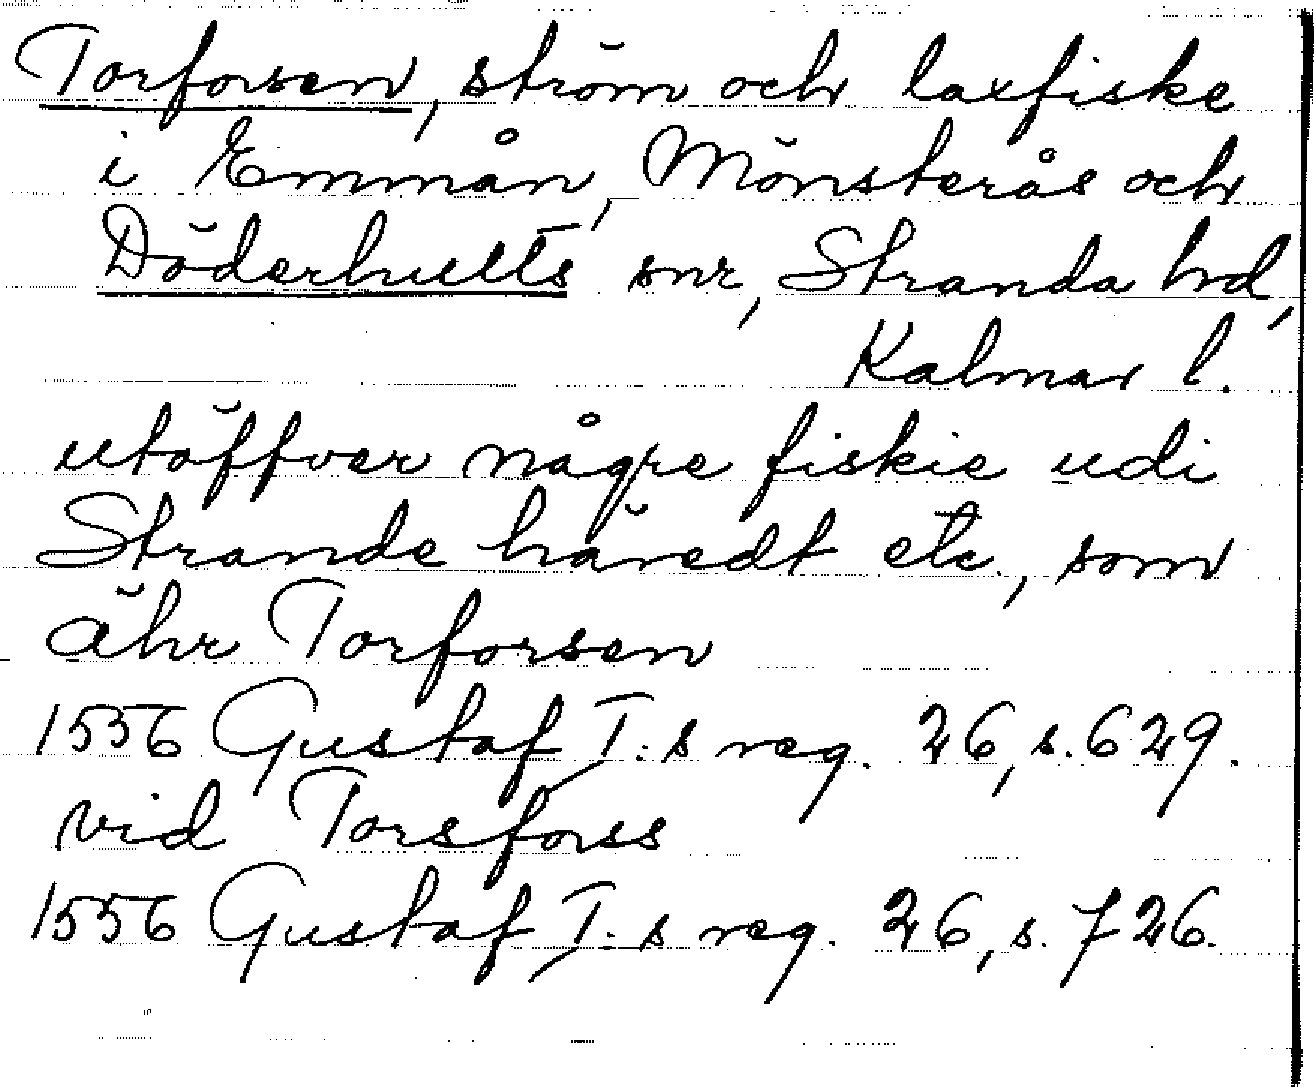 Torforsen, ström och laxfiske
i Emmån, Mönsterås och
Döderhults snr, Stranda hd,
Kalmar l.
utöffver någre fiskie udi
Strande häredt etc., som
ähr Torforsen
1556 Gustaf I:s reg. 26, s. 629.
vid Torsforss
1556 Gustaf I:s reg. 26, s. 726.